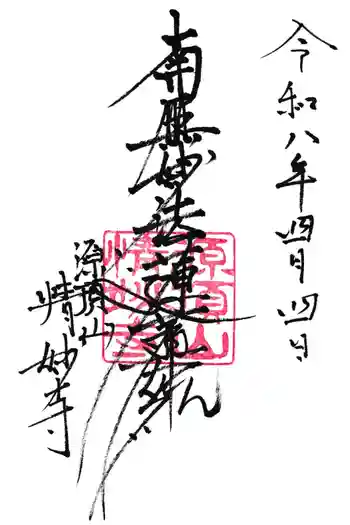 令和八年四月四日
南無妙法蓮華経
源頂山
情妙寺
源頂山
情妙寺